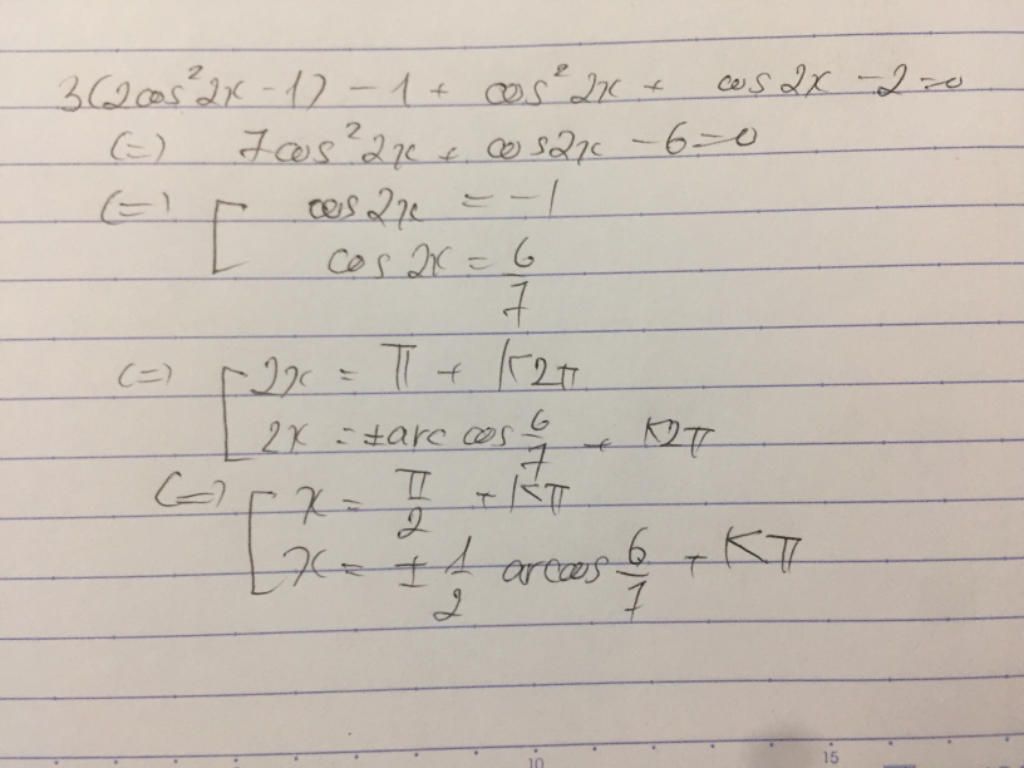 3(2cos²2x - 1) - 1 + cos²2x + cos2x - 2 = 0
(=) 7cos²2x + cos2x - 6 = 0
(=) [ cos2x = -1
cos2x = 6/7
(=) [ 2x = π + K2π
2x = ±arccos 6/7 + K2π
(=) [ x = π/2 + Kπ
x = ± 1/2 arccos 6/7 + Kπ
10 15